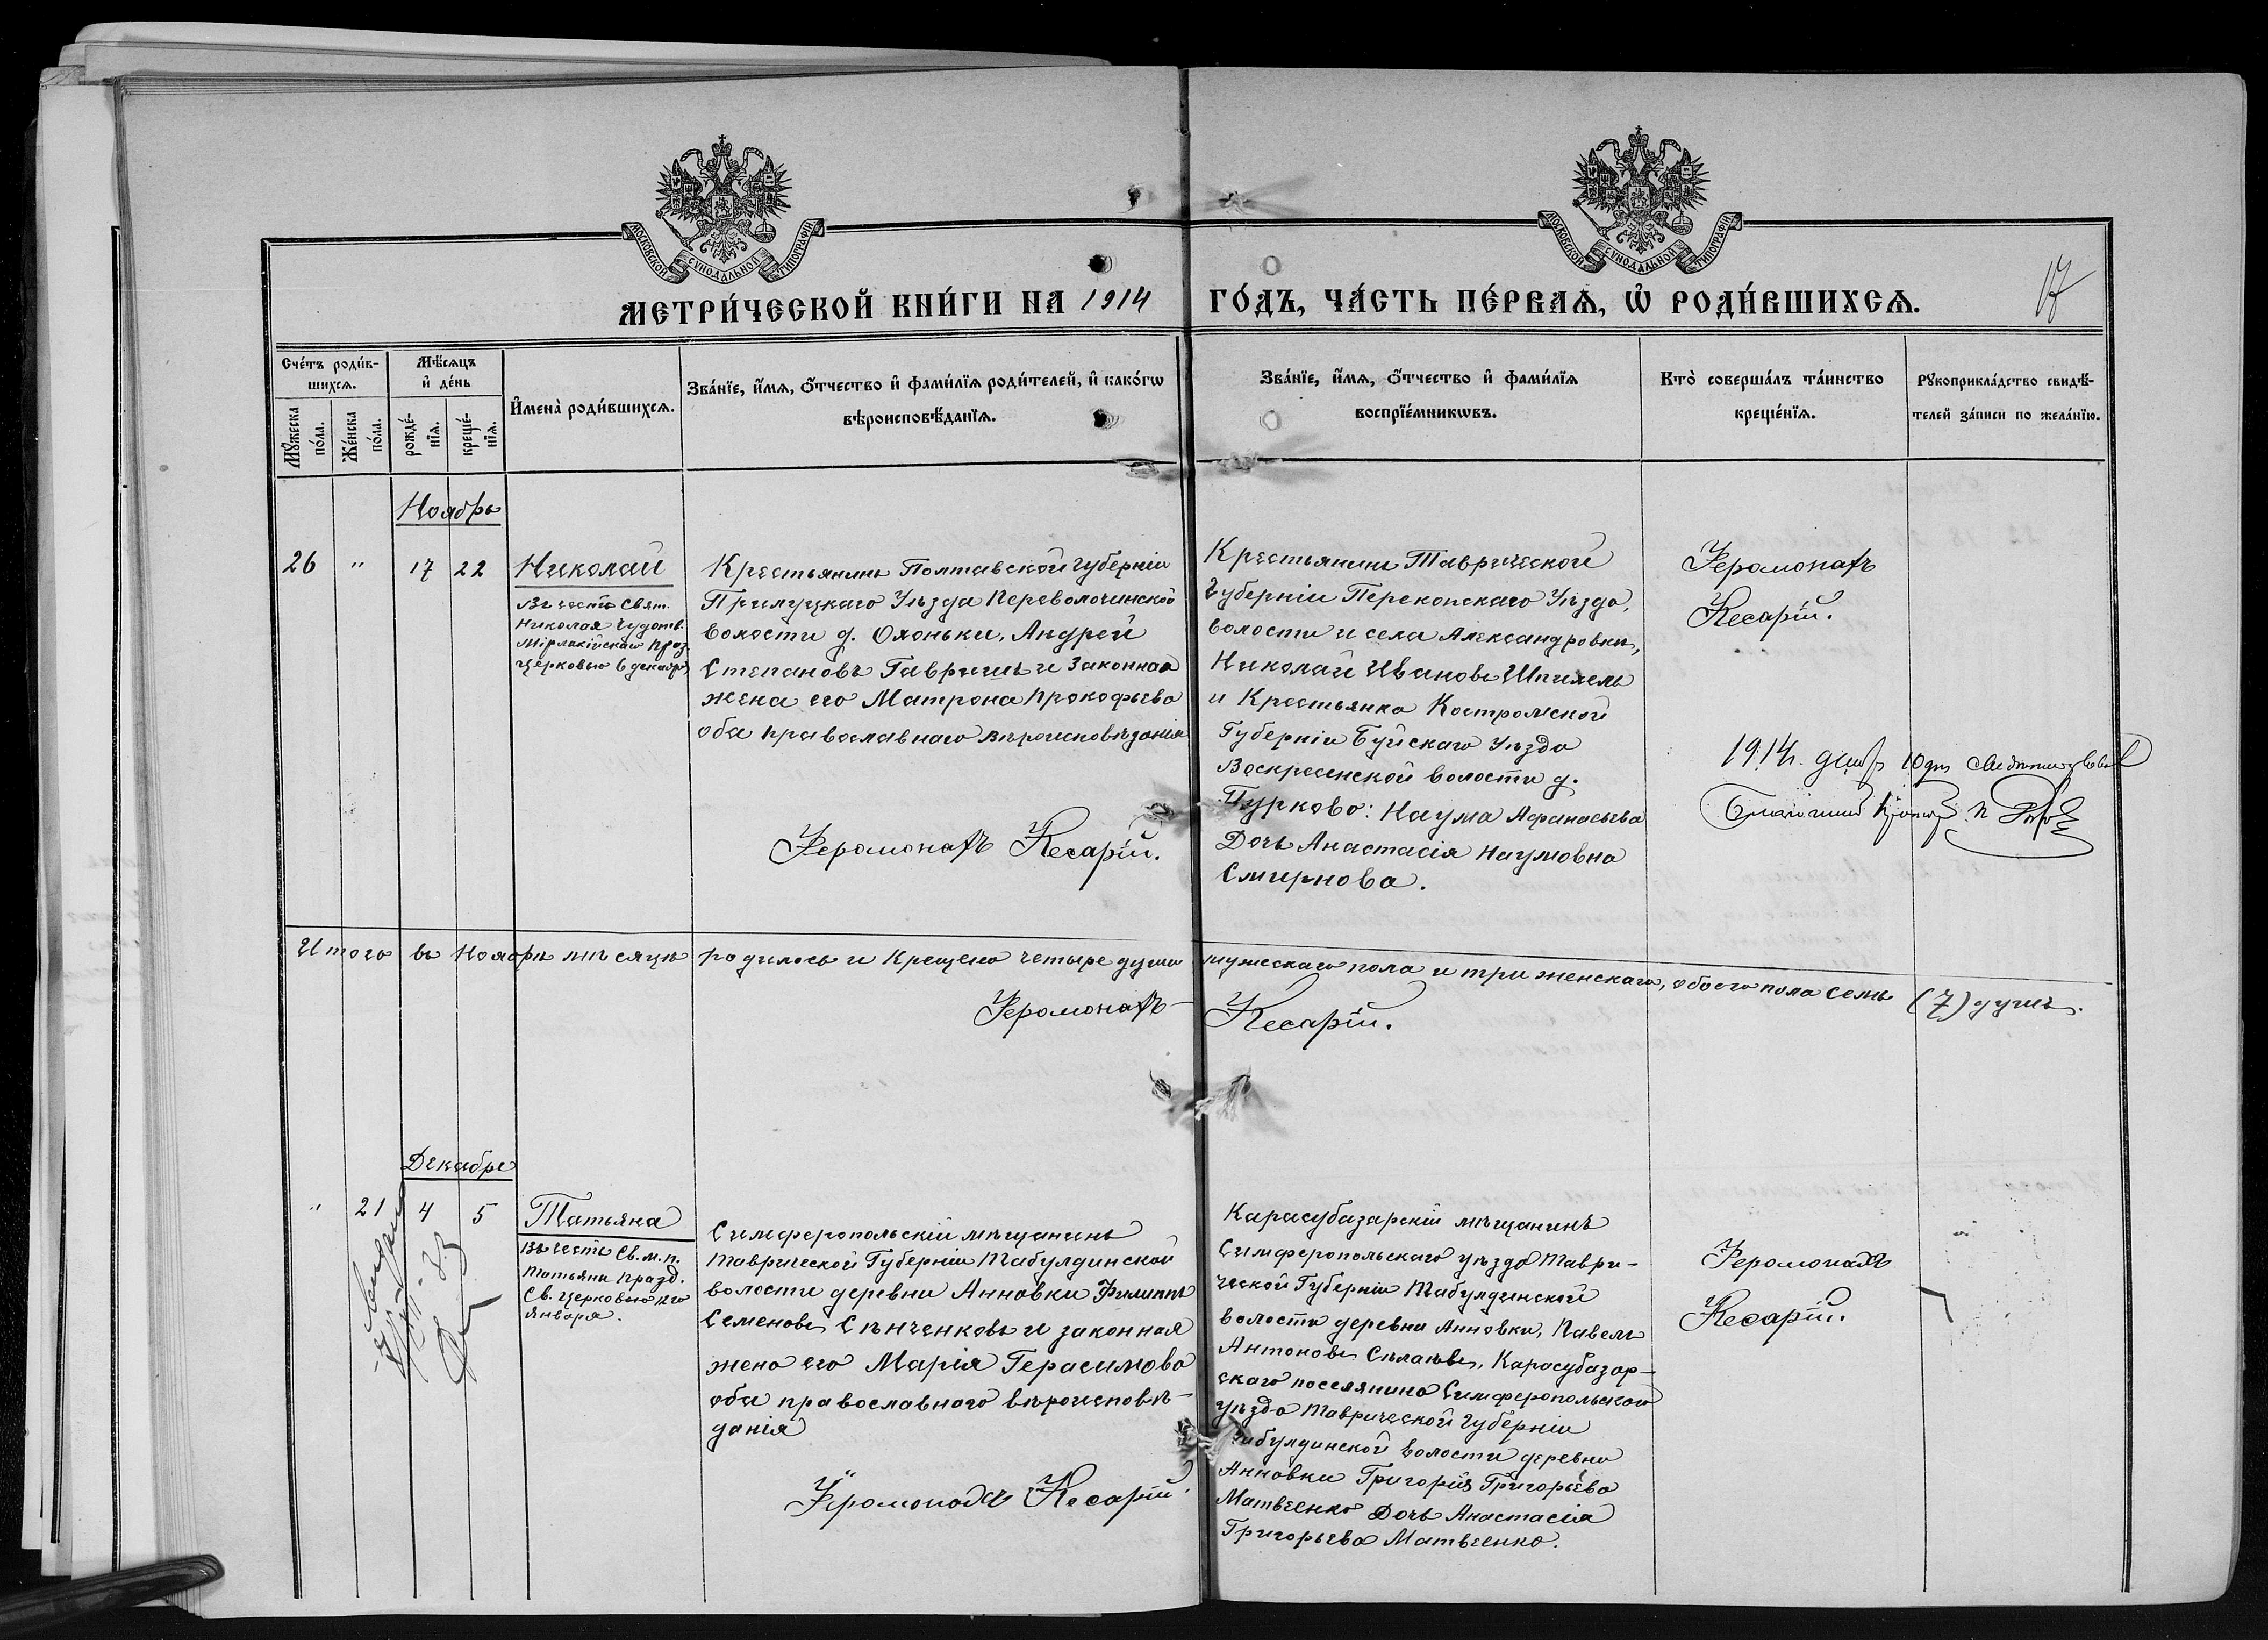 МОСКОВСКОЙ СѴНОДАЛЬНОЙ ТИПОГРАФІИ
МОСКОВСКОЙ СѴНОДАЛЬНОЙ ТИПОГРАФІИ
МЕТРИ́ЧЕСКОЙ КНИ́ГИ НА 1914 ГО́ДЪ, ЧА́СТЬ ПЕ́РВАѦ, Ѡ҆ РОДИ́ВШИХСѦ.
17
Сче́тъ роди́в-
шихсѧ.
Мѣ́сѧцъ
и҆ де́нь
Мꙋ́жеска по́ла.
Же́нска по́ла.
рожде́-
нїѧ.
креще́-
нїѧ.
И҆мена̀ роди́вшихсѧ.
Зва́нїе, и҆́мѧ, ѻ҆́тчество и҆ фами́лїѧ роди́телей, и҆ како́гѡ
вѣроисповѣ́данїѧ.
Зва́нїе, и҆́мѧ, ѻ҆́тчество и҆ фами́лїѧ
воспрїе́мникѡвъ.
Кто̀ соверша́лъ та́инство
креще́нїѧ.
Рꙋкоприкла́дство свидѣ́-
телей за́писи по жела́нїю.
Ноябрь
26 " 17 22
Николай
въ честь Свят.
Николая Чудотв.
Мірликійскаго праз.
Церковью 6 декабр.
Крестьянинъ Полтавской Губерніи
Прилуцкаго Уѣзда Переволочинской
волости д. Олоньки, Андрей
Степановъ Гавришъ и Законная
жена его Матрона Прокофьева
оба православнаго вѣроисповѣданія
Іеромонахъ Кесарій.
Крестьянинъ Таврической
Губерніи Перекопскаго Уѣзда,
волости и села Александровки,
Николай Ивановъ Шпилель
и Крестьянка Костромской
Губерніи Буйскаго Уѣзда
Воскресенской волости д.
Пурково: Наума Афанасьева
Дочь Анастасія Наумовна
Смирнова.
Іеромонахъ
Кесарій.
1914 г. 10 дня
Итого въ Ноябрѣ мѣсяцѣ родилось и крещено четыре души мужескаго пола и три женскаго, обоего пола семь (7) душъ.
Іеромонахъ Кесарій.
Декабрь
" 21 4 5
Татьяна
въ честь Св. м. п.
Татьяны празд.
Св. Церковью 12го
Января.
Симферопольскій мѣщанинъ
Таврической Губерніи Табулдинской
волости деревни Анновки Филиппъ
Семеновъ Сѣнченковъ и законная
жена его Марія Герасимова
оба православнаго вѣроисповѣ-
данія
Іеромонахъ Кесарій.
Карасубазарскій мѣщанинъ
Симферопольскаго уѣзда Таври-
ческой Губерніи Табулдинской
волости деревни Анновки, Павелъ
Антоновъ, Карасубазар-
скаго поселянина Симферопольскаго
уѣзда Таврической Губерніи
Табулдинской волости деревни
Анновки Григорія Григорьева
Матвеенко Дочь Анастасія
Григорьева Матвеенко.
Іеромонахъ
Кесарій.